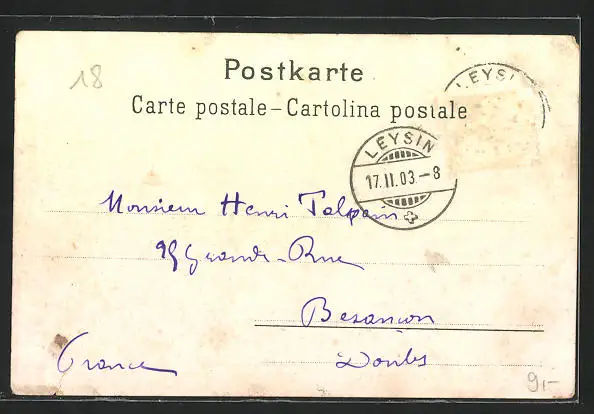 18
Postkarte
Carte postale – Cartolina postale
LEYSI
LEYSIN
17.II.03.–8
Monsieur Henri
Grande-Rue
Besançon
Doubs
France
9,-